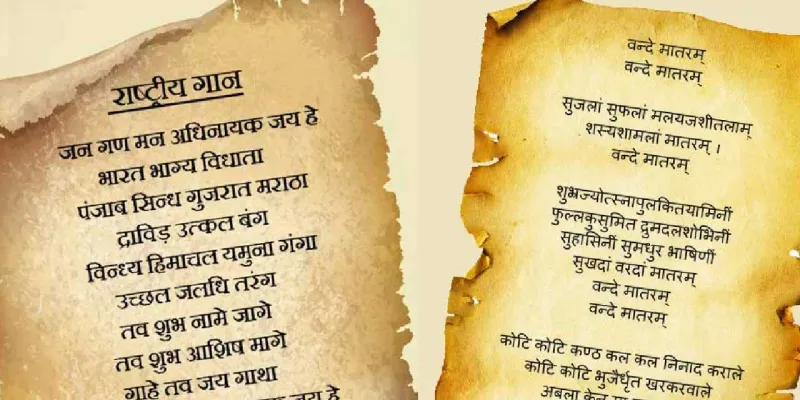 राष्ट्रीय गान
जन गण मन अधिनायक जय हे
भारत भाग्य विधाता
पंजाब सिन्ध गुजरात मराठा
द्राविड़ उत्कल बंग
विन्ध्य हिमाचल यमुना गंगा
उच्छल जलधि तरंग
तव शुभ नामे जागे
तव शुभ आशिष मागे
गाहे तव जय गाथा
जय हे
वन्दे मातरम्
वन्दे मातरम्
सुजलां सुफलां मलयजशीतलाम्
शस्यशामलां मातरम् ।
वन्दे मातरम्
शुभ्रज्योत्स्नापुलकितयामिनीं
फुल्लकुसुमित द्रुमदलशोभिनीं
सुहासिनीं सुमधुर भाषिणीं
सुखदां वरदां मातरम्
वन्दे मातरम्
वन्दे मातरम्
कोटि कोटि कण्ठ कल कल निनाद कराले
कोटि कोटि भुजैर्धृत खरकरवाले
अबला केन